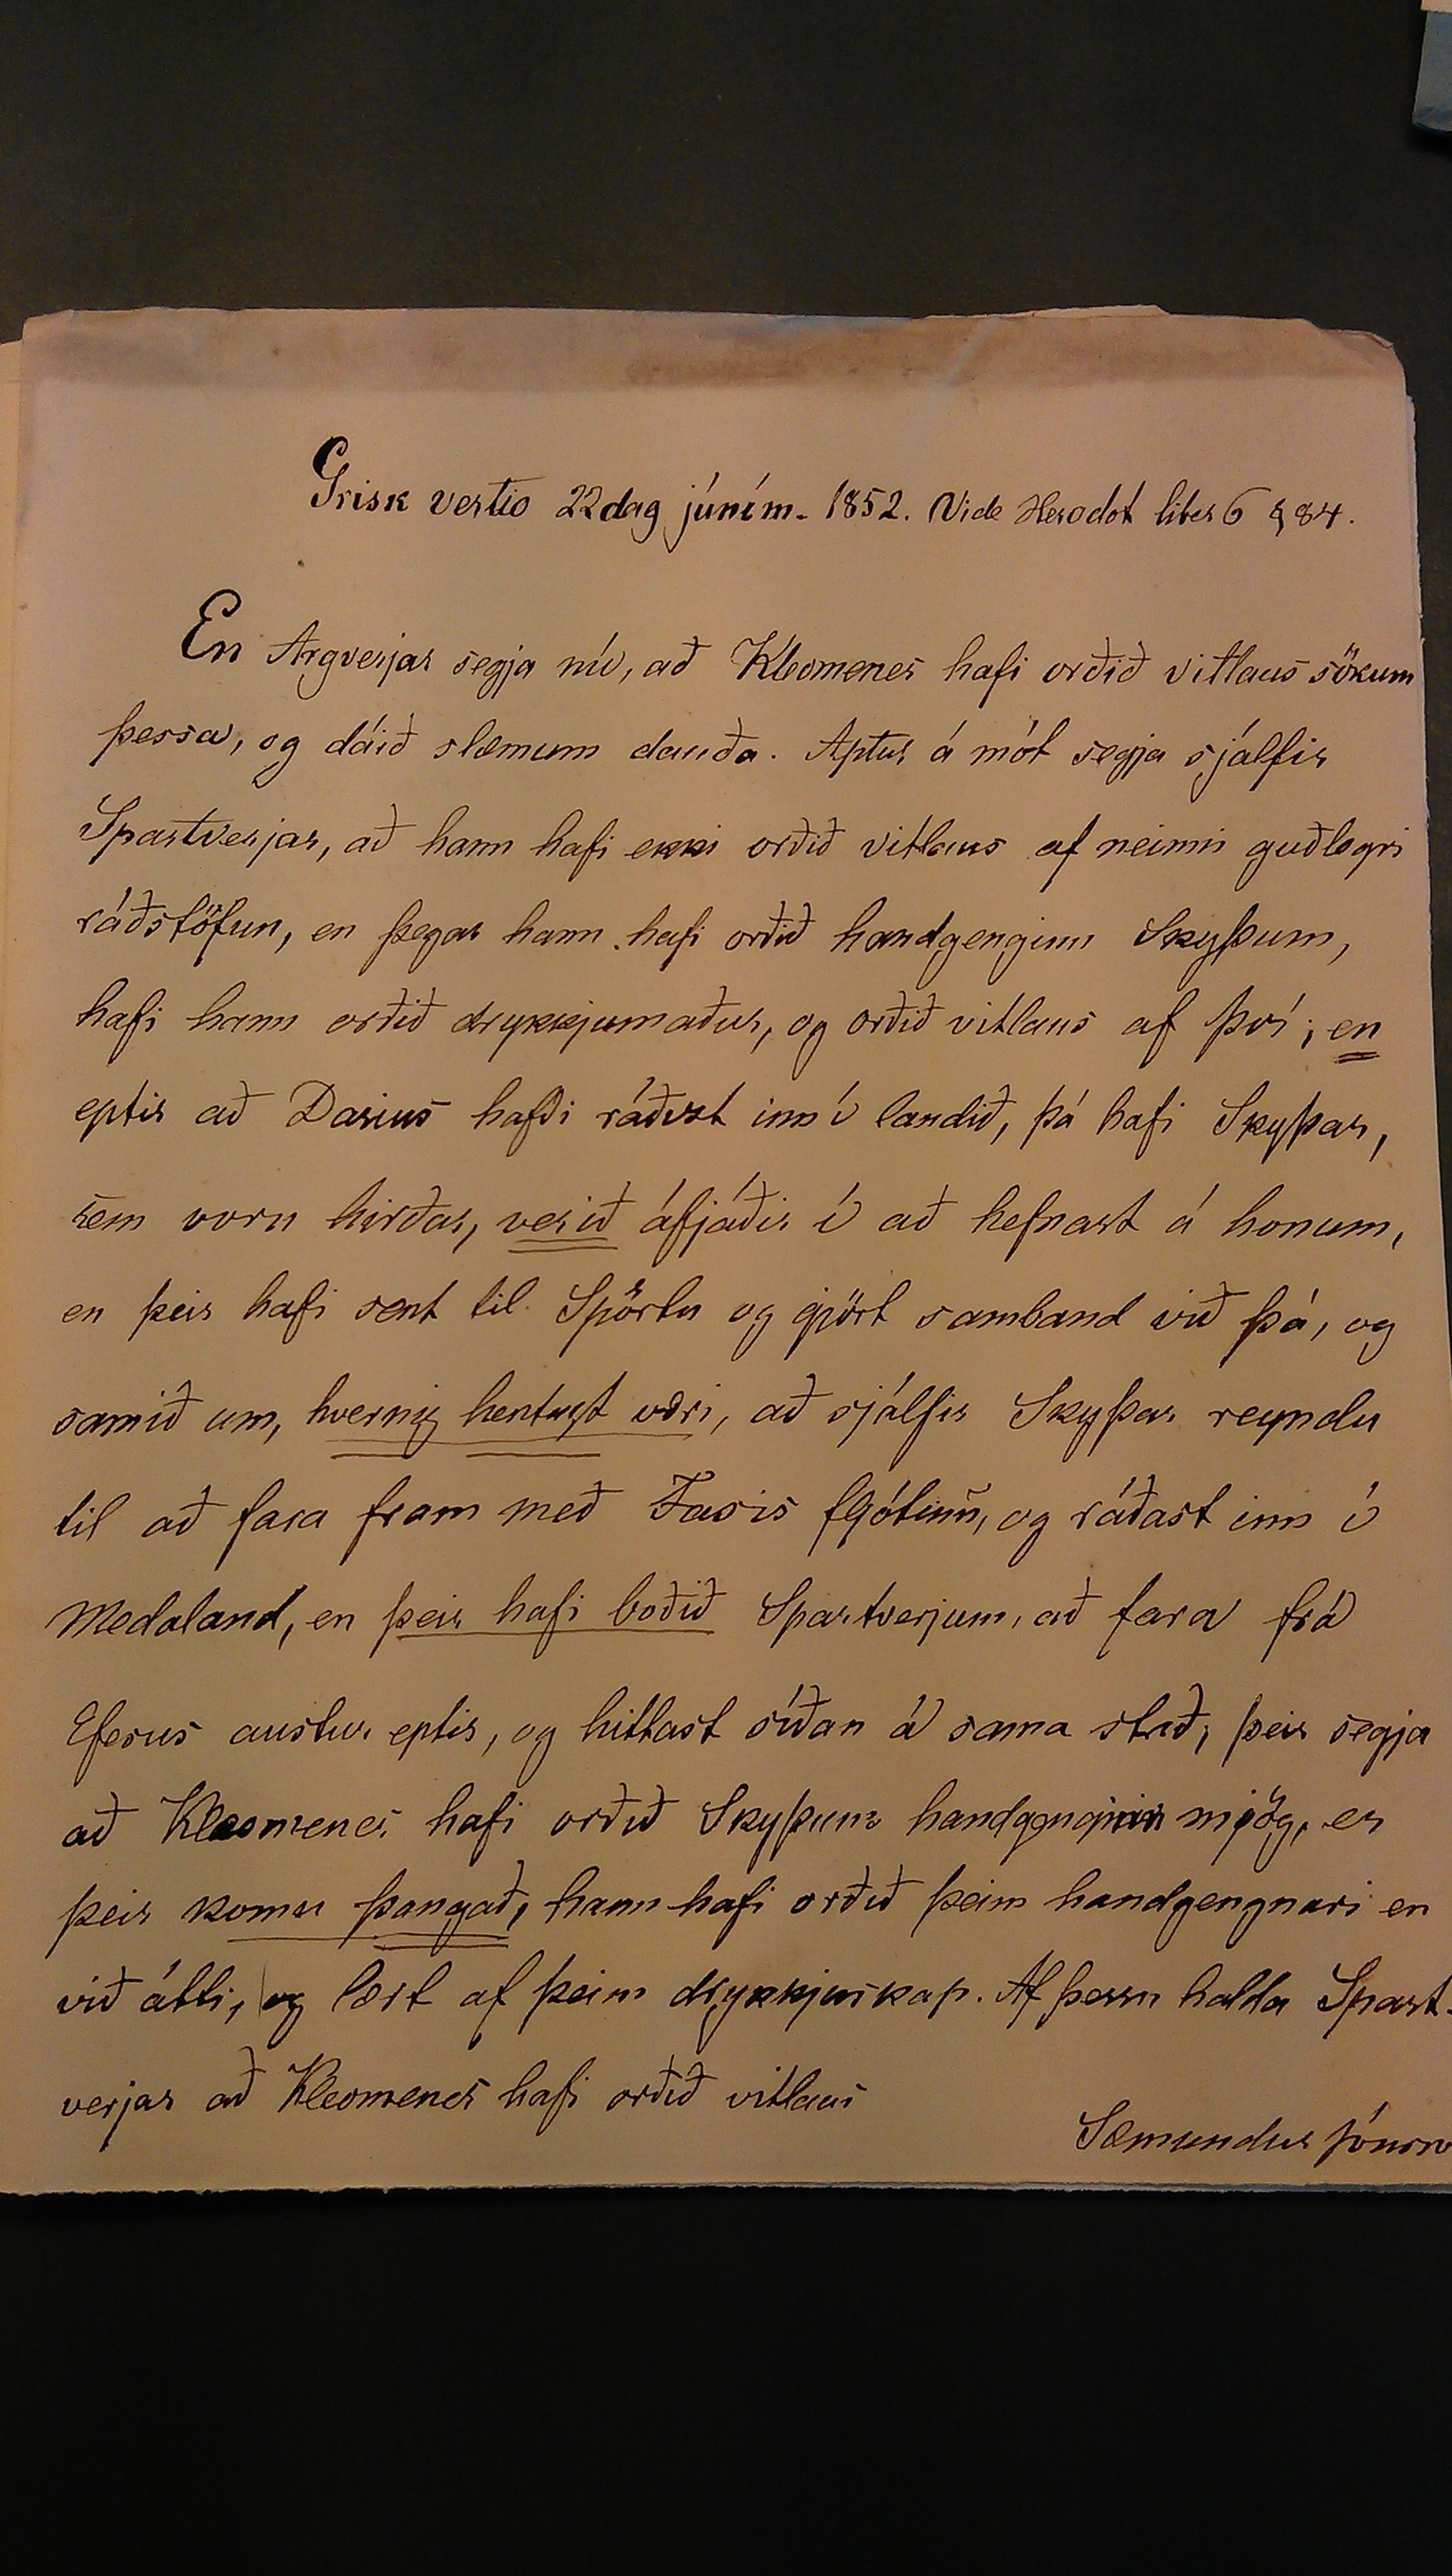 Grisk vertio 22 dag júním. 1852. Vide Herodot liber 6 § 84.
En Argverjar segja nú, að Kleomenes hafi orðið vitlaus sökum
þessa, og dáið slæmum dauða. Aptur á mót segja sjálfir
Spartverjar, að hann hafi ekki orðið vitlaus af neinni guðlegri
ráðstöfun, en þegar hann hafi orðið handgenginn Skyþum,
hafi hann orðið drykkjumaður, og orðið vitlaus af því; en
eptir að Darius hafði ráðizt inn í landið, þá hafi Skyþar,
sem voru hirðar, verið áfjáðir í að hefnast á honum,
en þeir hafi sent til Spörtu og gjört samband við þá, og
samið um, hvernig hentugst væri, að sjálfir Skyþar reyndu
til að fara fram með Fasis fljótinu, og ráðast inn í
Medaland, en þeir hafi boðið Spartverjum, að fara frá
Efesus austur eptir, og hittast síðan á sama stað; þeir segja
að Kleomenes hafi orðið Skyþum handgenginn mjög, er
þeir komu þangað, hann hafi orðið þeim handgengnari en
við átti, og lært af þeim drykkjuskap. Af þessu halda Spart-
verjar að Kleomenes hafi orðið vitlaus
Sæmundur Jónsson